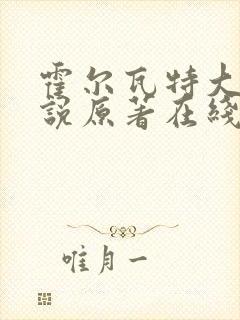 霍尔瓦特大
说原著在线
唯月一